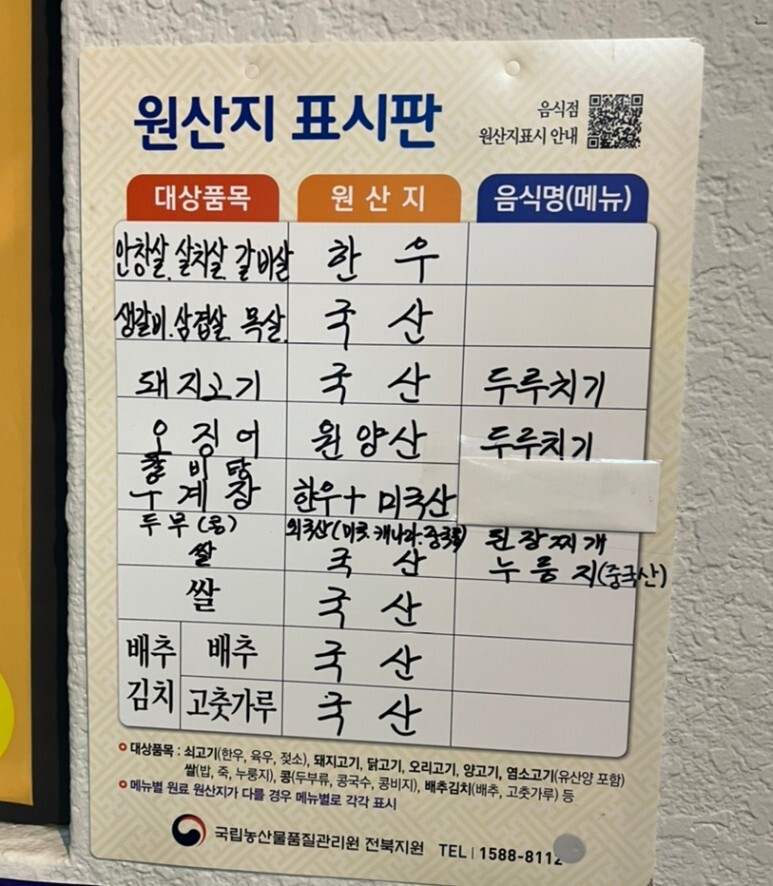 원산지 표시판
음식점
원산지표시 안내
대상품목 원산지 음식명(메뉴)
안창살, 살치살, 갈비살 한우
생갈비, 삼겹살, 목살, 국산
돼지고기 국산 두루치기
오징어 원양산 두루치기
갈비탕
우계장 한우+미국산
두부(콩) 외국산(미국, 캐나다, 중국 등) 된장찌개
쌀 국산 누룽지(중국산)
쌀 국산
배추김치 배추 국산
고춧가루 국산
대상품목 : 쇠고기(한우, 육우, 젖소), 돼지고기, 닭고기, 오리고기, 양고기, 염소고기(유산양 포함)
쌀(밥, 죽, 누룽지), 콩(두부류, 콩국수, 콩비지), 배추김치(배추, 고춧가루) 등
메뉴별 원료 원산지가 다를 경우 메뉴별로 각각 표시
국립농산물품질관리원 전북지원 TEL | 1588-8112